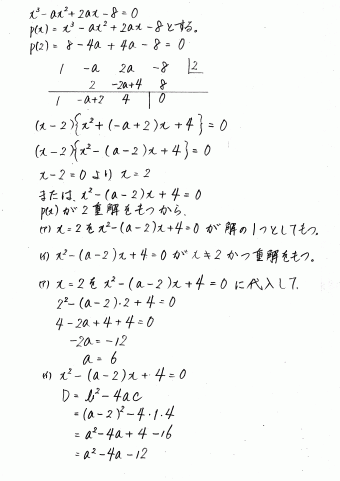 x³-ax²+2ax-8=0
P(x)=x³-ax²+2ax-8とする。
P(2)=8-4a+4a-8=0
1 -a 2a -8 |2
2 -2a+4 8
1 -a+2 4 |0
(x-2){x²+(-a+2)x+4}=0
(x-2){x²-(a-2)x+4}=0
x-2=0より x=2
または x²-(a-2)x+4=0
P(x)が2重解をもつから、
(ア) x=2をx²-(a-2)x+4=0が解の1つとしてもつ。
(イ) x²-(a-2)x+4=0がx≠2かつ重解をもつ。
(ア) x=2をx²-(a-2)x+4=0に代入して、
2²-(a-2)・2+4=0
4-2a+4+4=0
-2a=-12
a=6
(イ) x²-(a-2)x+4=0
D=b²-4ac
=(a-2)²-4・1・4
=a²-4a+4-16
=a²-4a-12